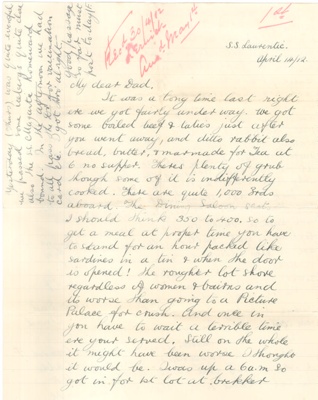 1st
Recd 30/4/12
Ansd May 1st
S.S. Laurentic.
April 14/12.
My dear Dad,
It was a long time last night
ere we got fairly under way. We got
some boiled beef & taties just after
you went away, and ditto rabbit also
bread, butter, & marmade for Tea at
6 no supper. Theres plenty of grub
though some of it is indifferently
cooked. There are quite 1,000 3rds
aboard. The Dining Saloon seat
I should think 350 to 400. so to
get a meal at proper time you have
to stand for an hour packed like
sardines in a tin & when the door
is opened! The rougher lot shove
regardless of women & bairns and
its worse than going to a Picture
Palace for crush. And once in
you have to wait a terrible time
ere your served. Still on the whole
it might have been worse I thought
it would be. I was up 6 am so
got in for 1st lot at brekker
Yesterday (Thurs) was quite
we passed some icebergs quite close
also the Allan homeward
bound. In the afternoon we had
to all pass the Dr for vaccination
card etc. I got thro alright.